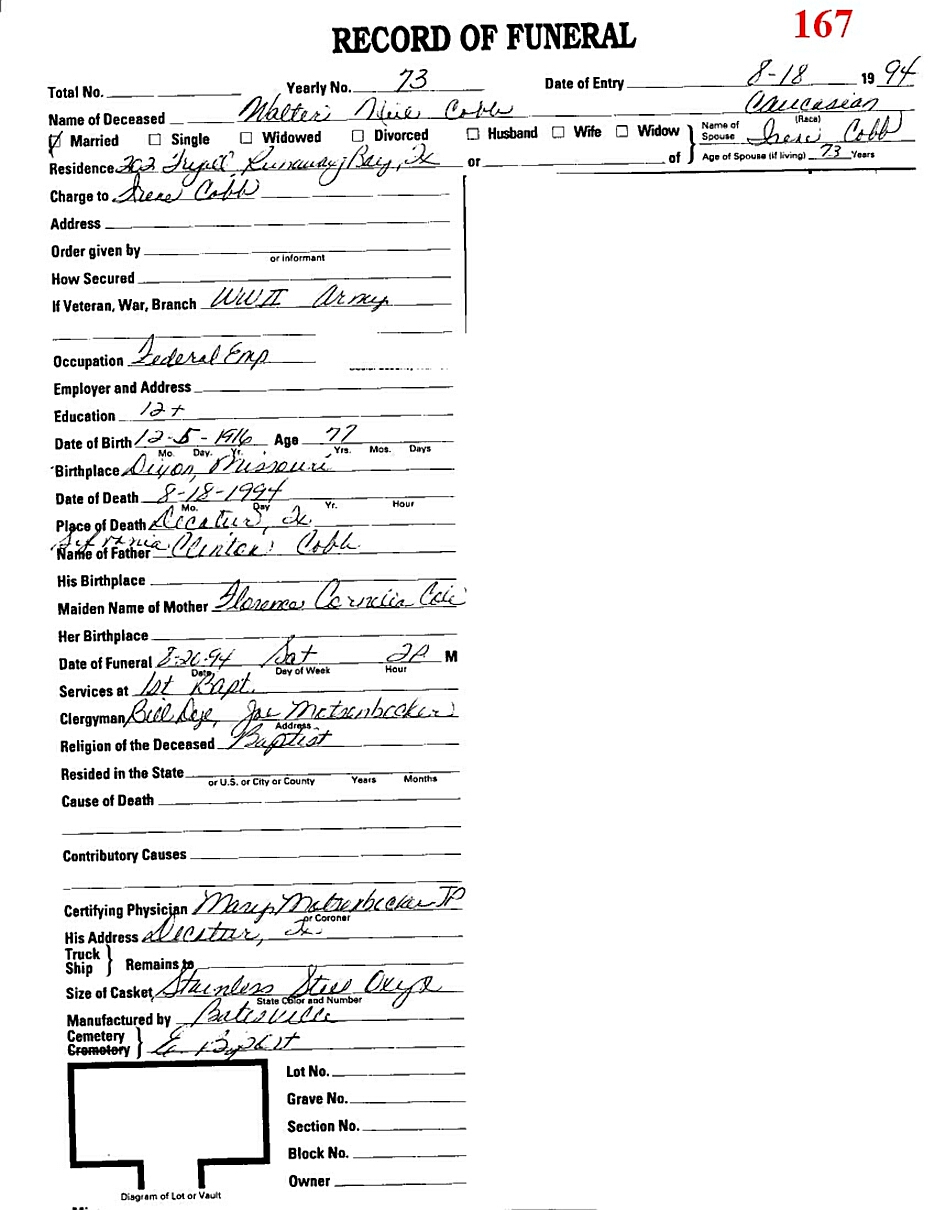 167
RECORD OF FUNERAL
Total No. Yearly No. 73 Date of Entry 8-18 19 94
Name of Deceased Walter Cobb Caucasian
(Race)
Married Single Widowed Divorced Husband Wife Widow Name of Spouse Irene Cobb
Residence 202 Runaway Bay, Tx or of Age of Spouse (if living) 73 Years
Charge to Irene Cobb
Address
Order given by
or informant
How Secured
If Veteran, War, Branch WWII Army
Occupation Federal Emp
Employer and Address
Education 12+
Date of Birth 12-5-1916 Age 77
Mo. Day. Yr. Yrs. Mos. Days
Birthplace Dixon, Missouri
Date of Death 8-18-1994
Mo. Day Yr. Hour
Place of Death Decatur, Tx
Name of Father Clinton Cobb
His Birthplace
Maiden Name of Mother Florence Cornelia
Her Birthplace
Date of Funeral 8-20-94 Sat 2P M
Date Day of Week Hour
Services at 1st Bapt.
Clergyman Bill Joe Matsenbecker
Address
Religion of the Deceased Baptist
Resided in the State
or U.S. or City or County Years Months
Cause of Death
Contributory Causes
Certifying Physician Mary Matsenbecker JP
or Coroner
His Address Decatur, Tx
Truck
Ship } Remains to
Size of Casket Stainless Steel
State Color and Number
Manufactured by Batesville
Cemetery
Crematory }
Lot No.
Grave No.
Section No.
Block No.
Owner
Diagram of Lot or Vault